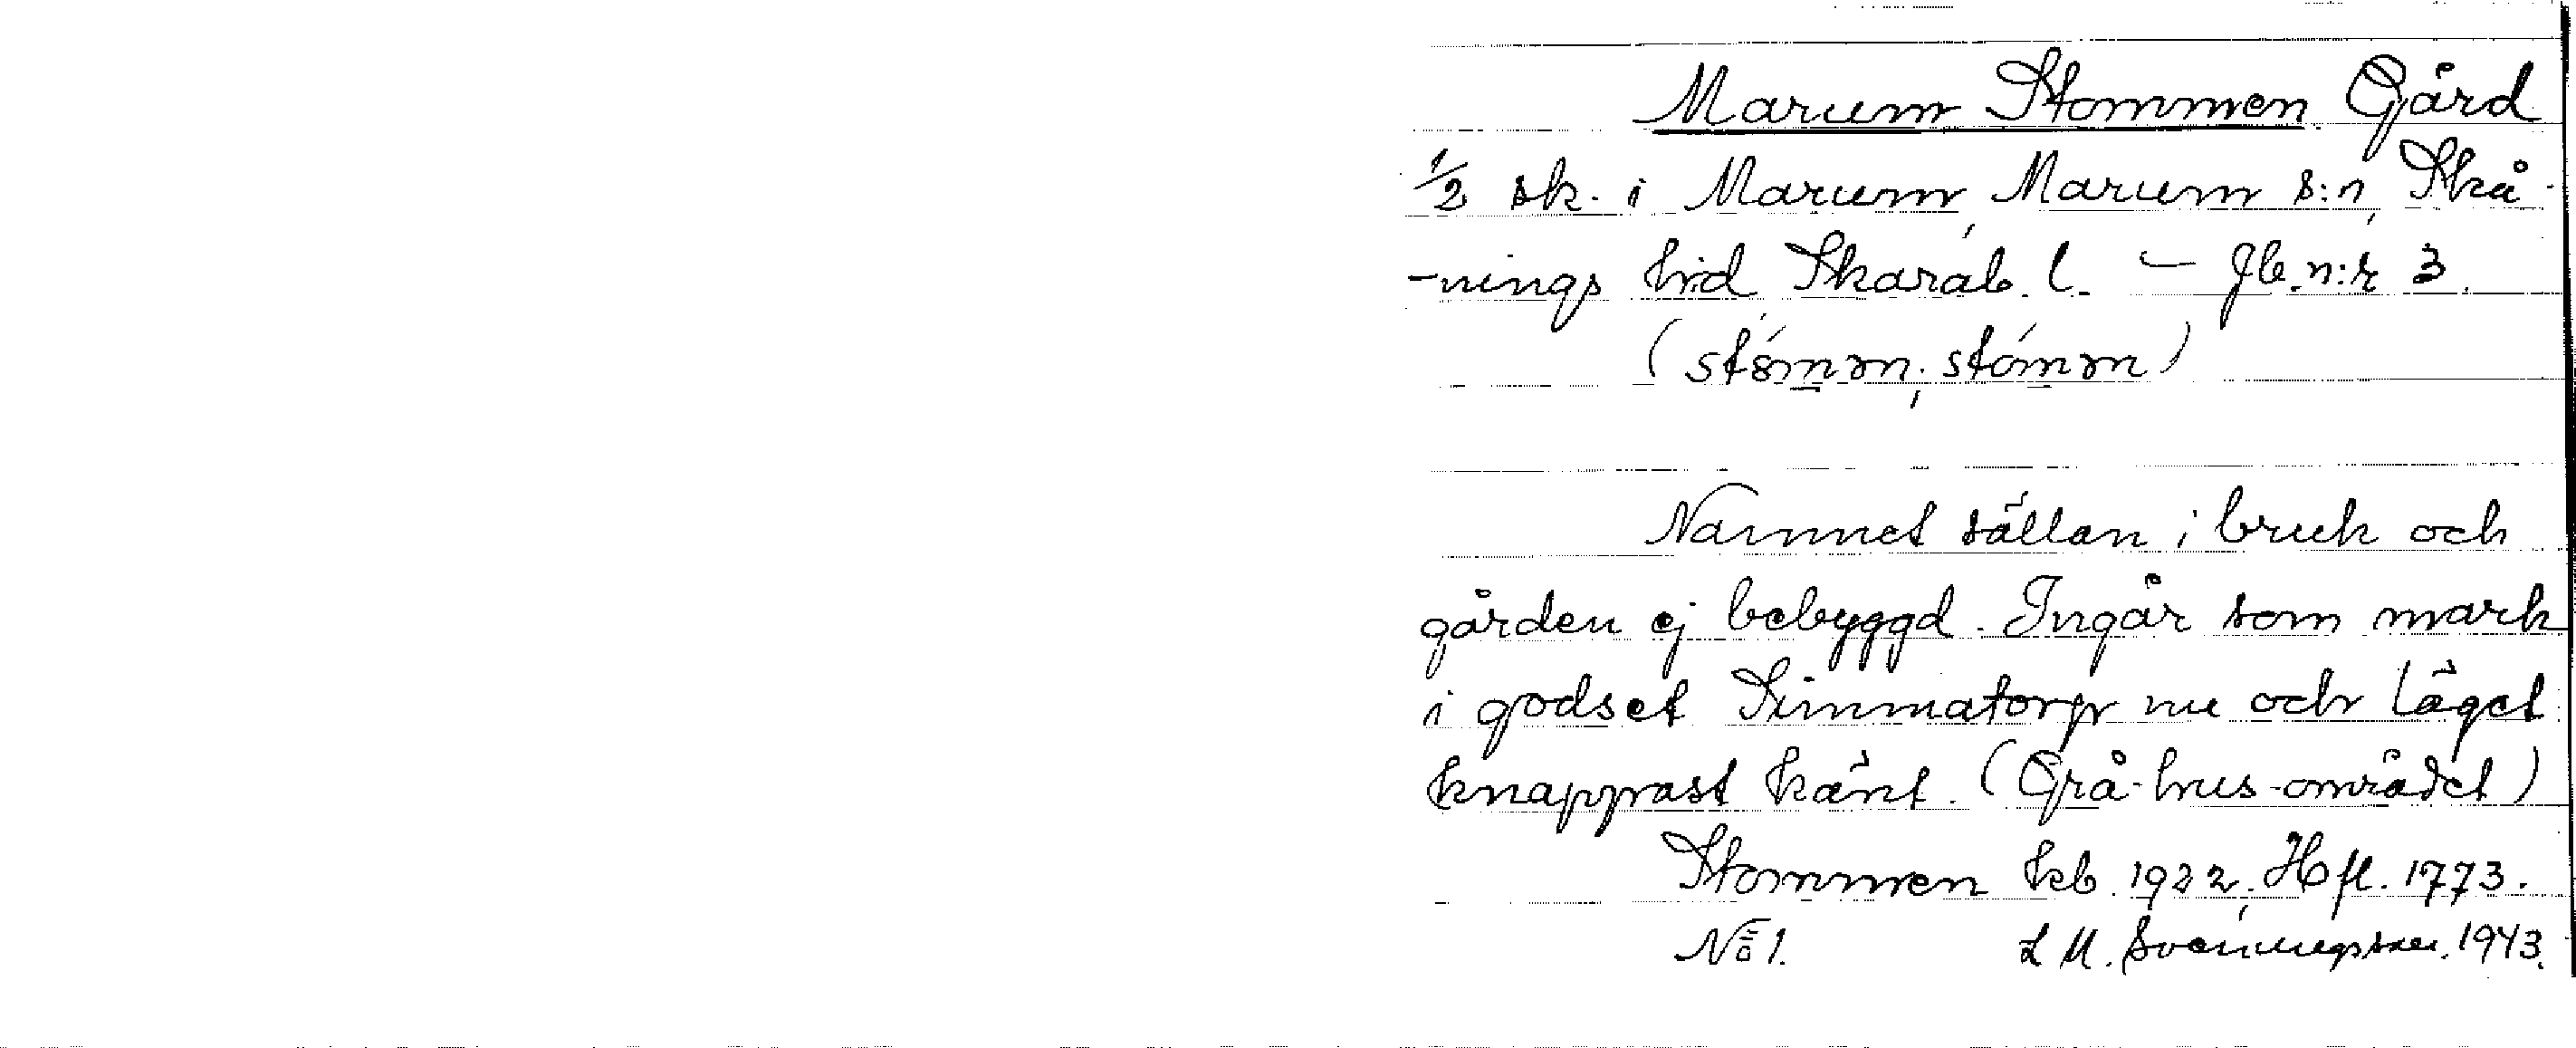 Marum Stommen Gård
1/2 sk. i Marum, Marum s:n, Skå-
-nings hrd, Skarab. l. – Jb. n:r 3.
(stómən; stómən)
Namnet sällan i bruk och
gården ej bebyggd. Ingår som mark
i godset Simmatorp nu och läget
knappast känt. (Grå-hus-området)
Stommen kb. 1922; Hfl. 1773.
No 1. L M. Svenungsson. 1943.